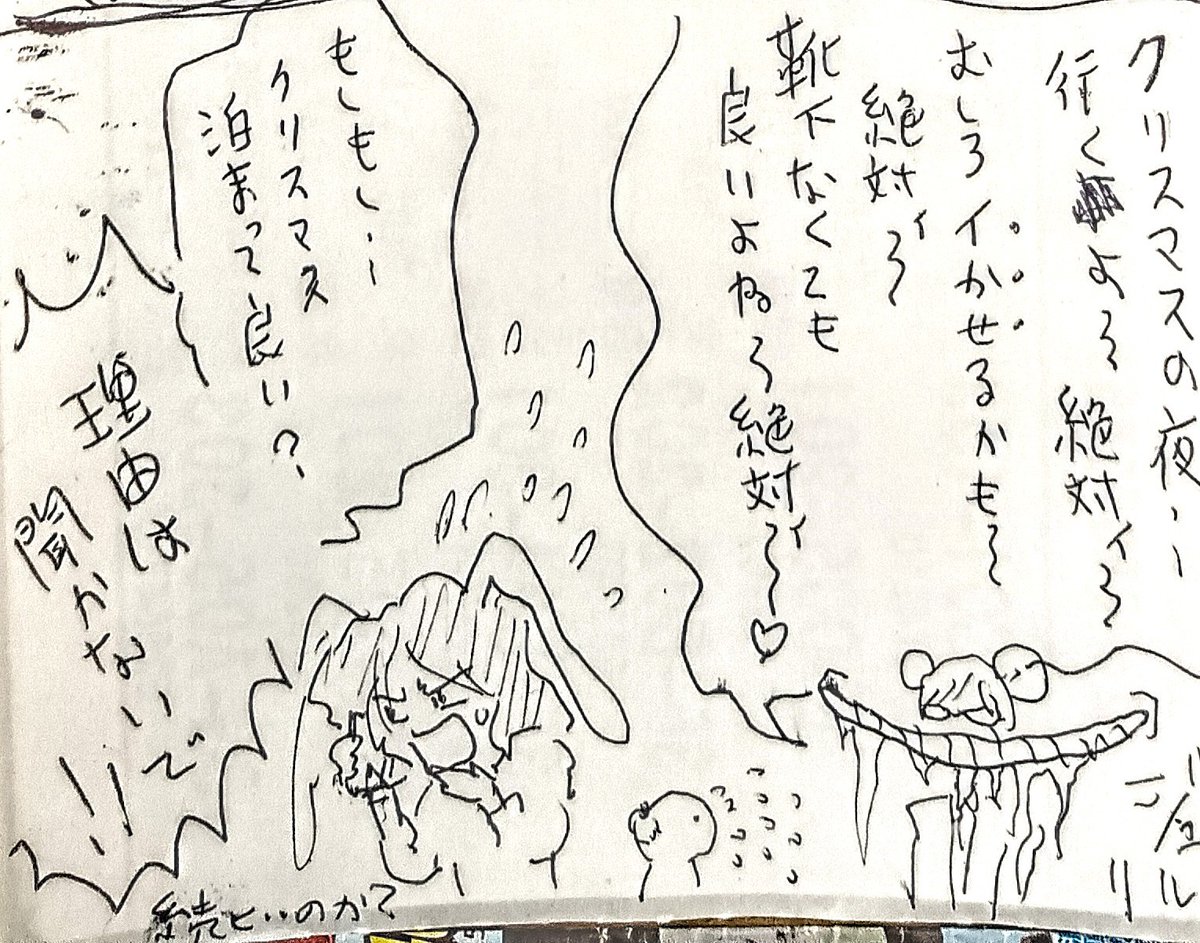 クリスマスの夜…
行くよろ絶対イろ
むしろイかせるかもろ
絶対イろ
靴下なくても
良いよねろ絶対イろ♡
もしもし…
クリスマス
泊まって良い?
理由は
聞かないで
!!